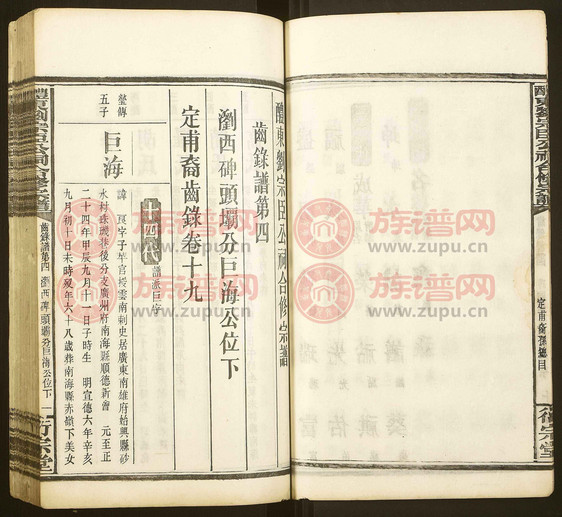 醴東劉宗臣公祠合修宗譜
齒錄譜第四
瀏西碑頭壩分巨海公位下
定甫裔齒錄卷十九
十四代
譜派巨字
瑩傳
五子
巨海
諱 字子
官授雲南刺史居廣東南雄府始興縣砂
水村珠璣巷後分支廣州府南海縣順德新會 元至正
二十四年甲辰九月十一日子時生 明宣德六年辛亥
九月初十日未時歿年六十八歲葬南海縣赤嶺下美女
齒錄譜第四 瀏西碑頭壩分巨海公位下 一
衍宗堂
醴東劉宗臣公祠合修宗譜
定甫裔孫總目
衍宗堂
族谱网
www.zupu.cn
族谱网
www.zupu.cn
族谱网
www.zupu.cn
族谱网
www.zupu.cn